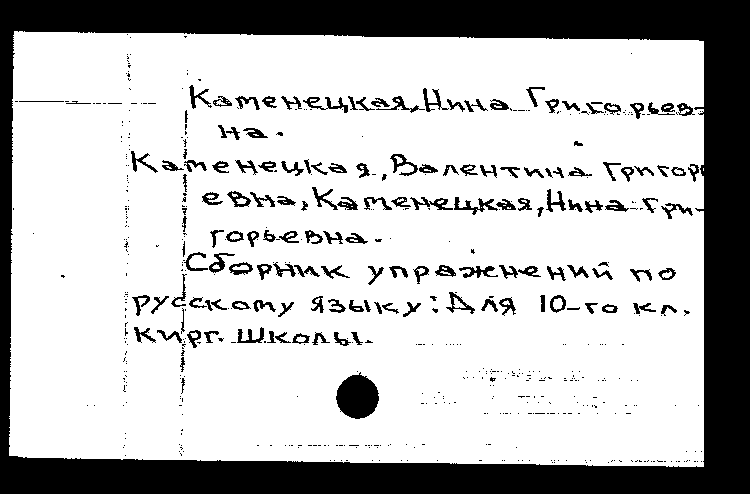 Каменецкая, Нина Григорьев-
на.
Каменецкая, Валентина Григорь
евна, Каменецкая, Нина Гри-
горьевна.
Сборник упражнений по
русскому языку: Для 10-го кл.
кирг. школы.